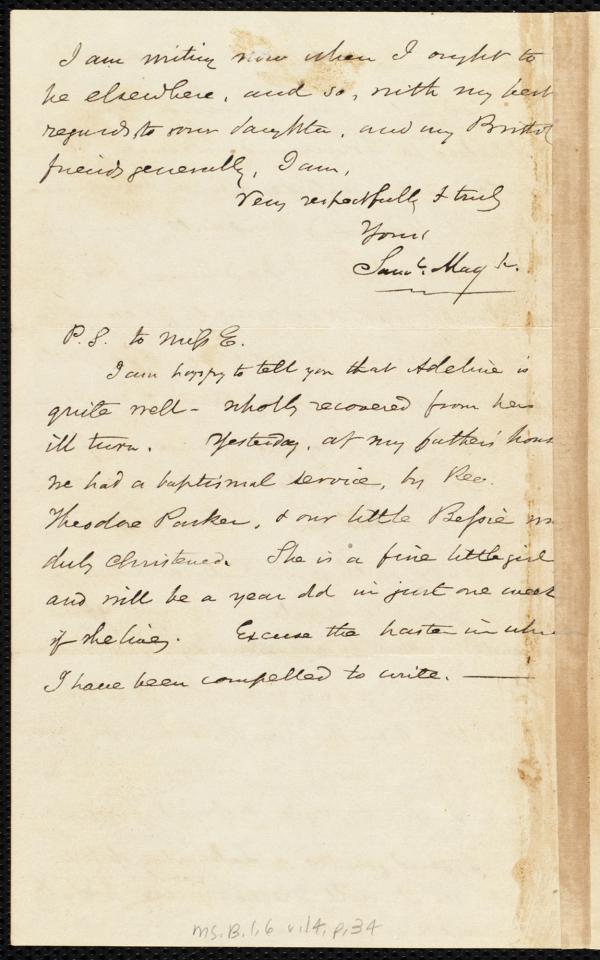 I am writing now when I ought to
be elsewhere, and so, with my best
regards to your daughter, and my Bristol
friends generally, I am,
Very respectfully & truly
Yours
Saml. May Jr.
P.S. to Miss E.
I am happy to tell you that Adeline is
quite well - wholly recovered from her
ill turn. Yesterday, at my father's hous
we had a baptismal service, by Rev.
Theodore Parker, & our little Bessie wa
duly christened. She is a fine little girl
and will be a year old in just one week
if she lives. Excuse the haste in whi
I have been compelled to write. —
Ms. B. 1. 6 v. 14, p. 34